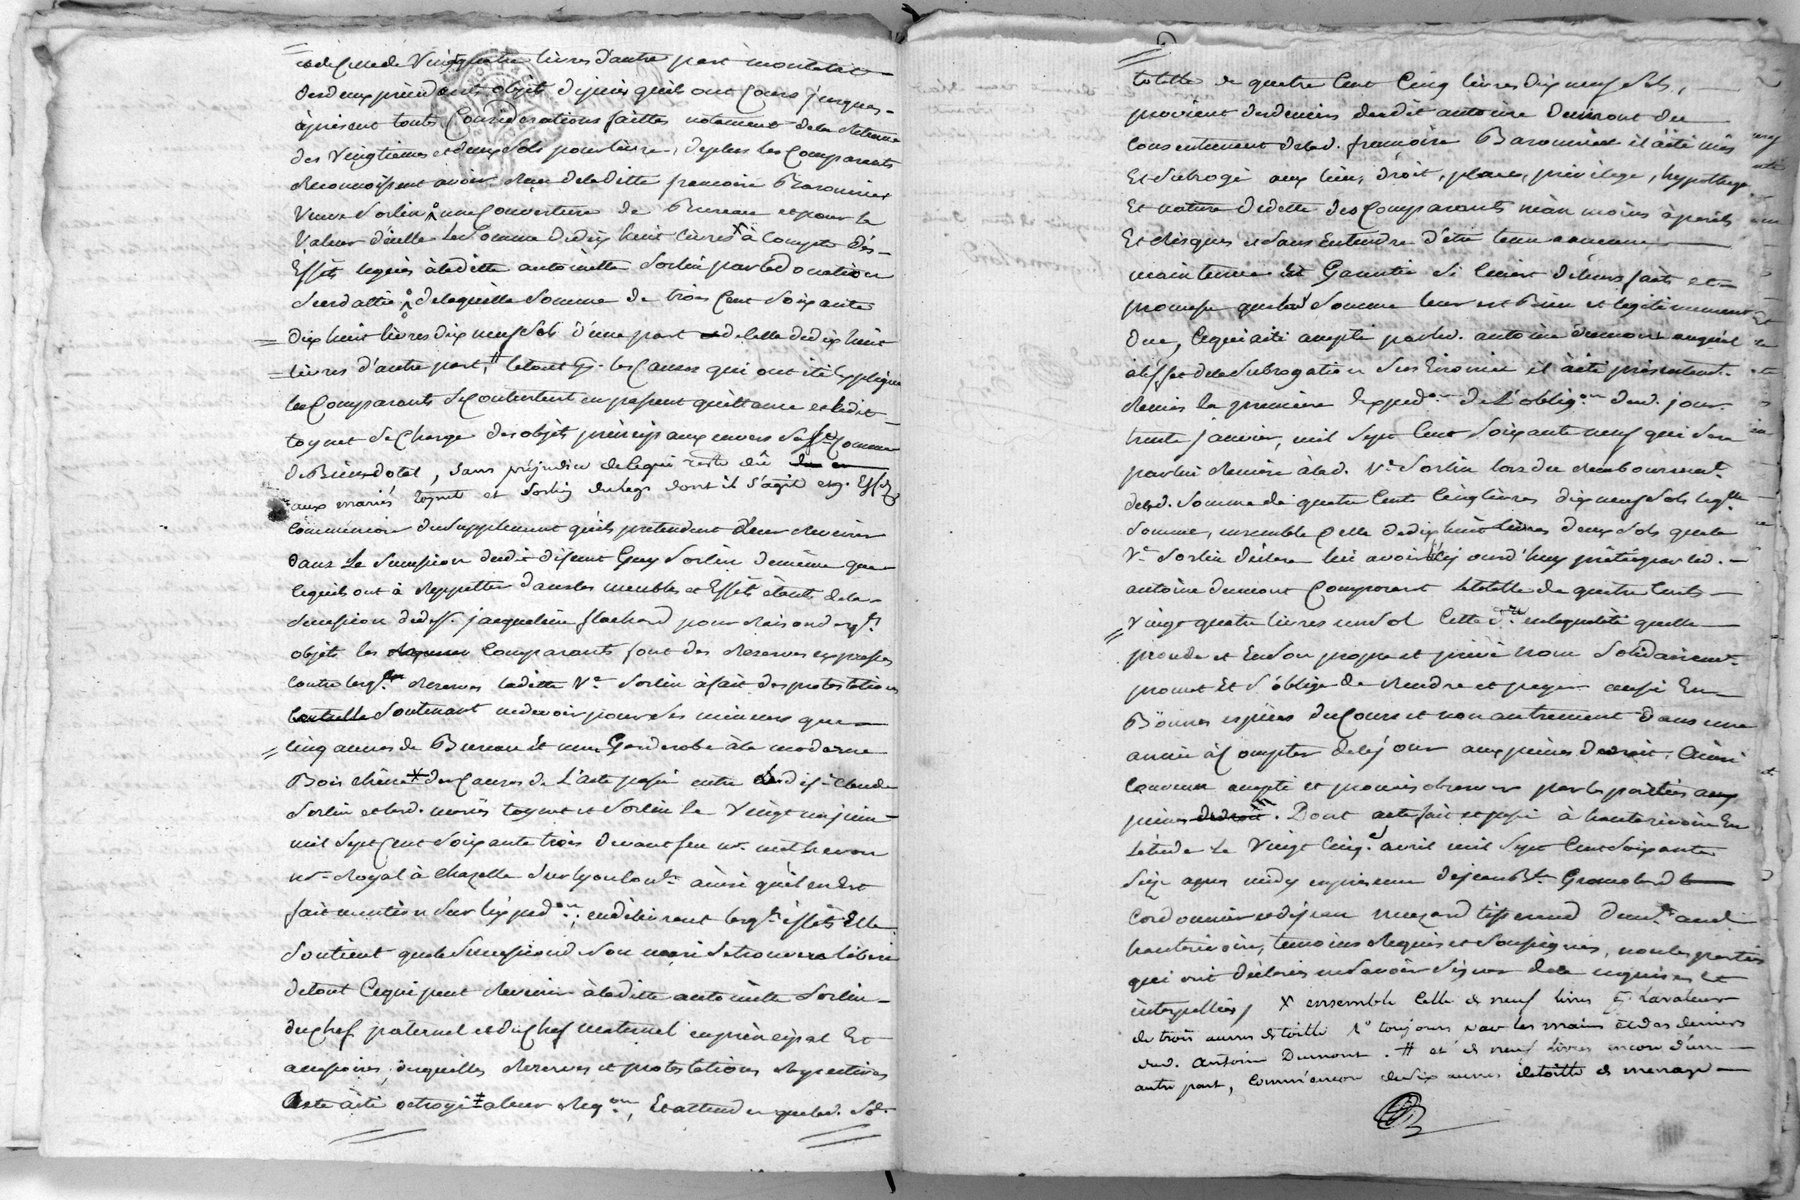 de celle de Vingtquatre livres d'autre part montant
desdeux précédents objets depuis quils ont Cours jusques
àprésent toutes Considerations faittes notament dela Retenue
des Vingtiemes et deux sols pour livre, deplus les Comparants
Reconnoissent avoir Reçu deladitte francoise Baronnier
Veuve Sorlin une Couverture de Bureau et pour la
Valeur d'icelle la Somme dedix huit livres X à Compte des
Effets legués àladitte antoinette Sorlin par la donation
susdattée delaquelle Somme de trois Cent soixante
dix huit livres dix neuf sols d'une part et de celle dedix huit
livres d'autre part, # les Causes qui ont été Expliqué
les Comparants se Contentent en passent quittance et ledit
toynet se Charge des objets principaux envers sa fe Comme
de Bien dotal, sans préjudice de ce qui reste dû
aux mariés toynet et Sorlin du legs dont il s'agit en Effets
Comme encor du supplement quils pretendent Leur Revenir
dans La Succession dudit deffunt Guy Sorlin de même que
ce quils ont à Reppetter dans les meubles et Effets étants dela
Succession de deffte jacqueline flachard pour Raison desqls
objets les Comparants font des Reserves expresses
Contre lesqles Reserves laditte Ve Sorlin à fait des protestations
Soutenant nedevoir pour ses mineurs que
Cinq aunes de Bureau Et une Garderobe àla moderne
Bois chêne X des Causes de L'acte passé entre Claude
Sorlin et lesd. mariés toynet et Sorlin le Vingt un juin
mil sept Cent soixante trois devant feu me mathevon
nre Royal à Chazelle sur lyon ainsi quil en Est
fait mention sur l'expedon; en délivrant lesqls effets Elle
Soutient que la Succession de Son mari se trouvera libérée
detout Cequi peut Revenir àladitte antoinette Sorlin
du Chef paternel et du Chef maternel en principal Et
accessoires, desquelles Reserves et protestations Respectives
Acte à été octroyé à leur Reqon, Et attendu que lad. Sde
totalle de quatre Cent Cinq livres dix neuf sols,
provient des deniers dudit antoine Dumont du
Consentement delad. francoise Baronnier il à été mis
Et subrogé aux lieu, droit, place, privilege, hypotheque
Et nature de dette des Comparants néan moins à perils
Et Risques et sans Entendre d'être tenu aucune
maintenue Et Garantie si Cen'est de leurs faits et
promesse que lad Somme leur est Bien et legitimement
due, Ce qui a été accepté par led. antoine dumont auquel
al'effet dela subrogation sus Enoncée il à été présentemt
Remis la premiere Expedon de L'obligon dud. jour
trente janvier, mil sept Cent soixante neuf qui sera
par lui Remise à lad. Ve Sorlin lors du Remboursement
delad. Somme de quatre Cent Cinq livres dix neuf sols laqlle
Somme, ensemble Celle dedix huit livres deux sols que la
Ve Sorlin déclare lui avoir été cejourd'huy prêtée par led.
antoine dumont Composant latotalle de quatre Cents
Vingt quatre livres un sol Cette Dre en laqualité quelle
procede et En son propre et privé nom solidairemt
promet Et s'oblige de Rendre et payer aussi En
Bonnes espèces du Cours et non autrement dans une
année à Compter dece jour aux peines de droit. Ainsi
Convenu accepté et promis observer par les parties aux
peines de droit. Dont acte fait et passé à hauterivoire En
L'étude le Vingt Cinq. avril mil sept Cent soixante
Seize apres midy en presence de jean Bte Gromolard
Cordonnier et de jean muzard tisserand demts aud.
hauterivoire, temoins Requis et soussignés, non les parties
qui ont déclarés ne savoir signer dece requises et
interpellées, X ensemble Celle de neuf livres pr La valeur
de trois aunes de toille to toujours par les mains et des deniers
dud. Antoine Dumont. # et de neuf livres encore d'une
autre part, Comme encor de six aunes de toille de menage